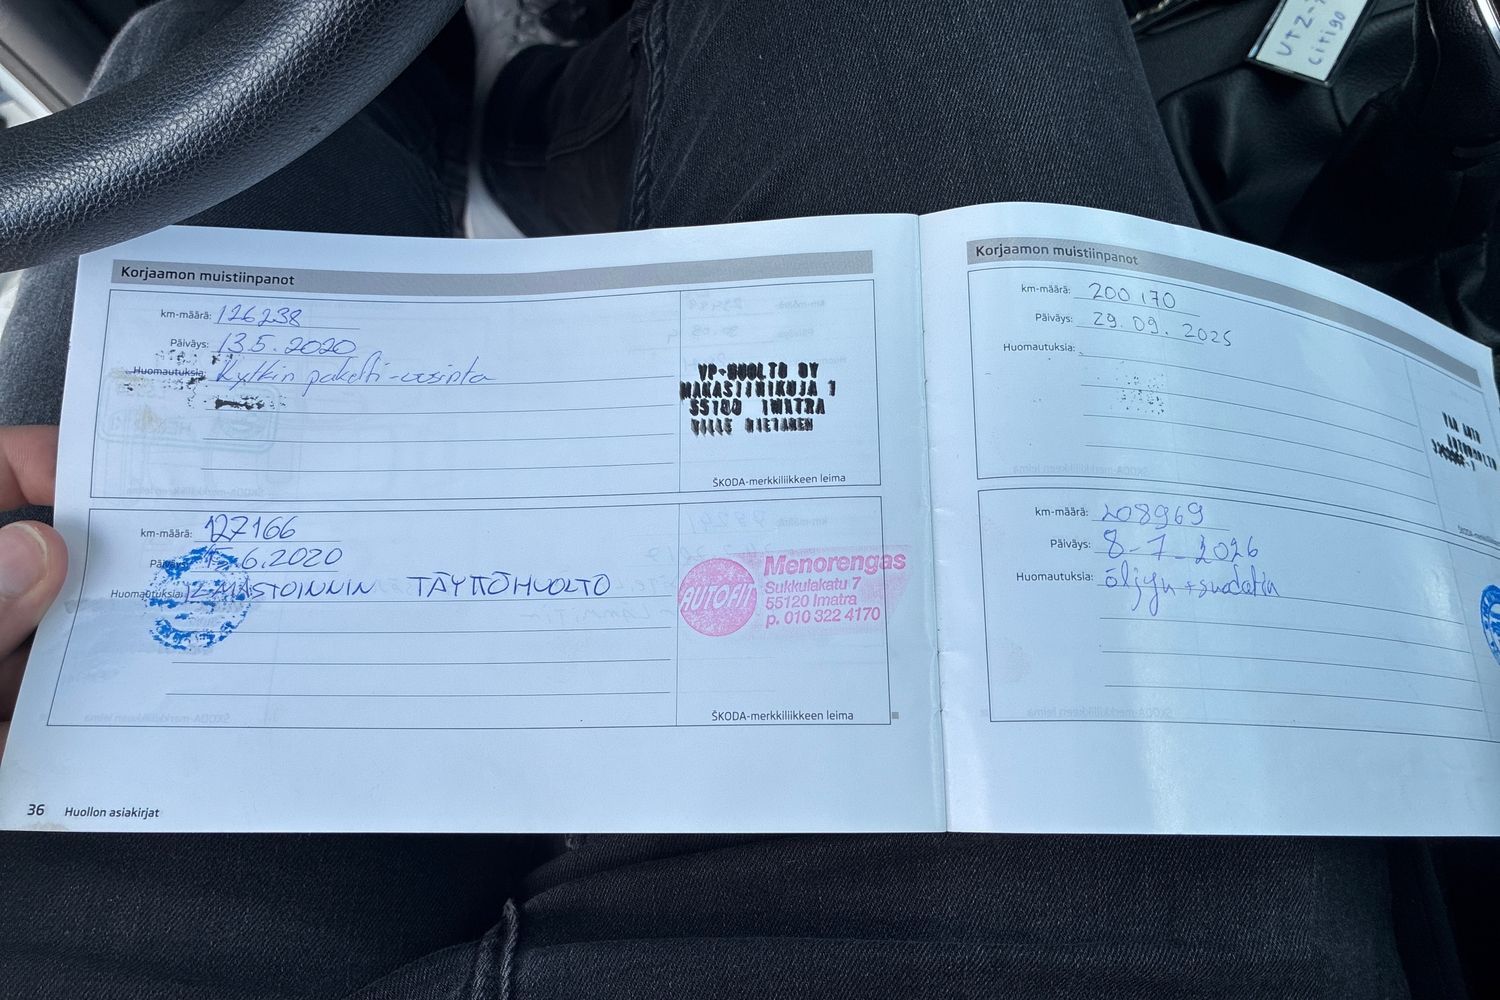 UTZ-
Citigo
Korjaamon muistiinpanot
km-määrä: 126238
Päiväys: 13.5.2020
Huomautuksia: Kytkin paketti-uusinta
VP-HUOLTO OY
MAKASIINIKUJA 1
55100 IMATRA
VILLE HIETANEN
ŠKODA-merkkiliikkeen leima
km-määrä: 127166
Päiväys: 15.6.2020
Huomautuksia: ILMASTOINNIN TÄYTTÖHUOLTO
AUTOFIT
Menorengas
Sukkulakatu 7
55120 Imatra
p. 010 322 4170
ŠKODA-merkkiliikkeen leima
36 Huollon asiakirjat
Korjaamon muistiinpanot
km-määrä: 200 170
Päiväys: 29.09.2025
Huomautuksia:
km-määrä: 208969
Päiväys: 8-7-2026
Huomautuksia: öljyn + suodatin